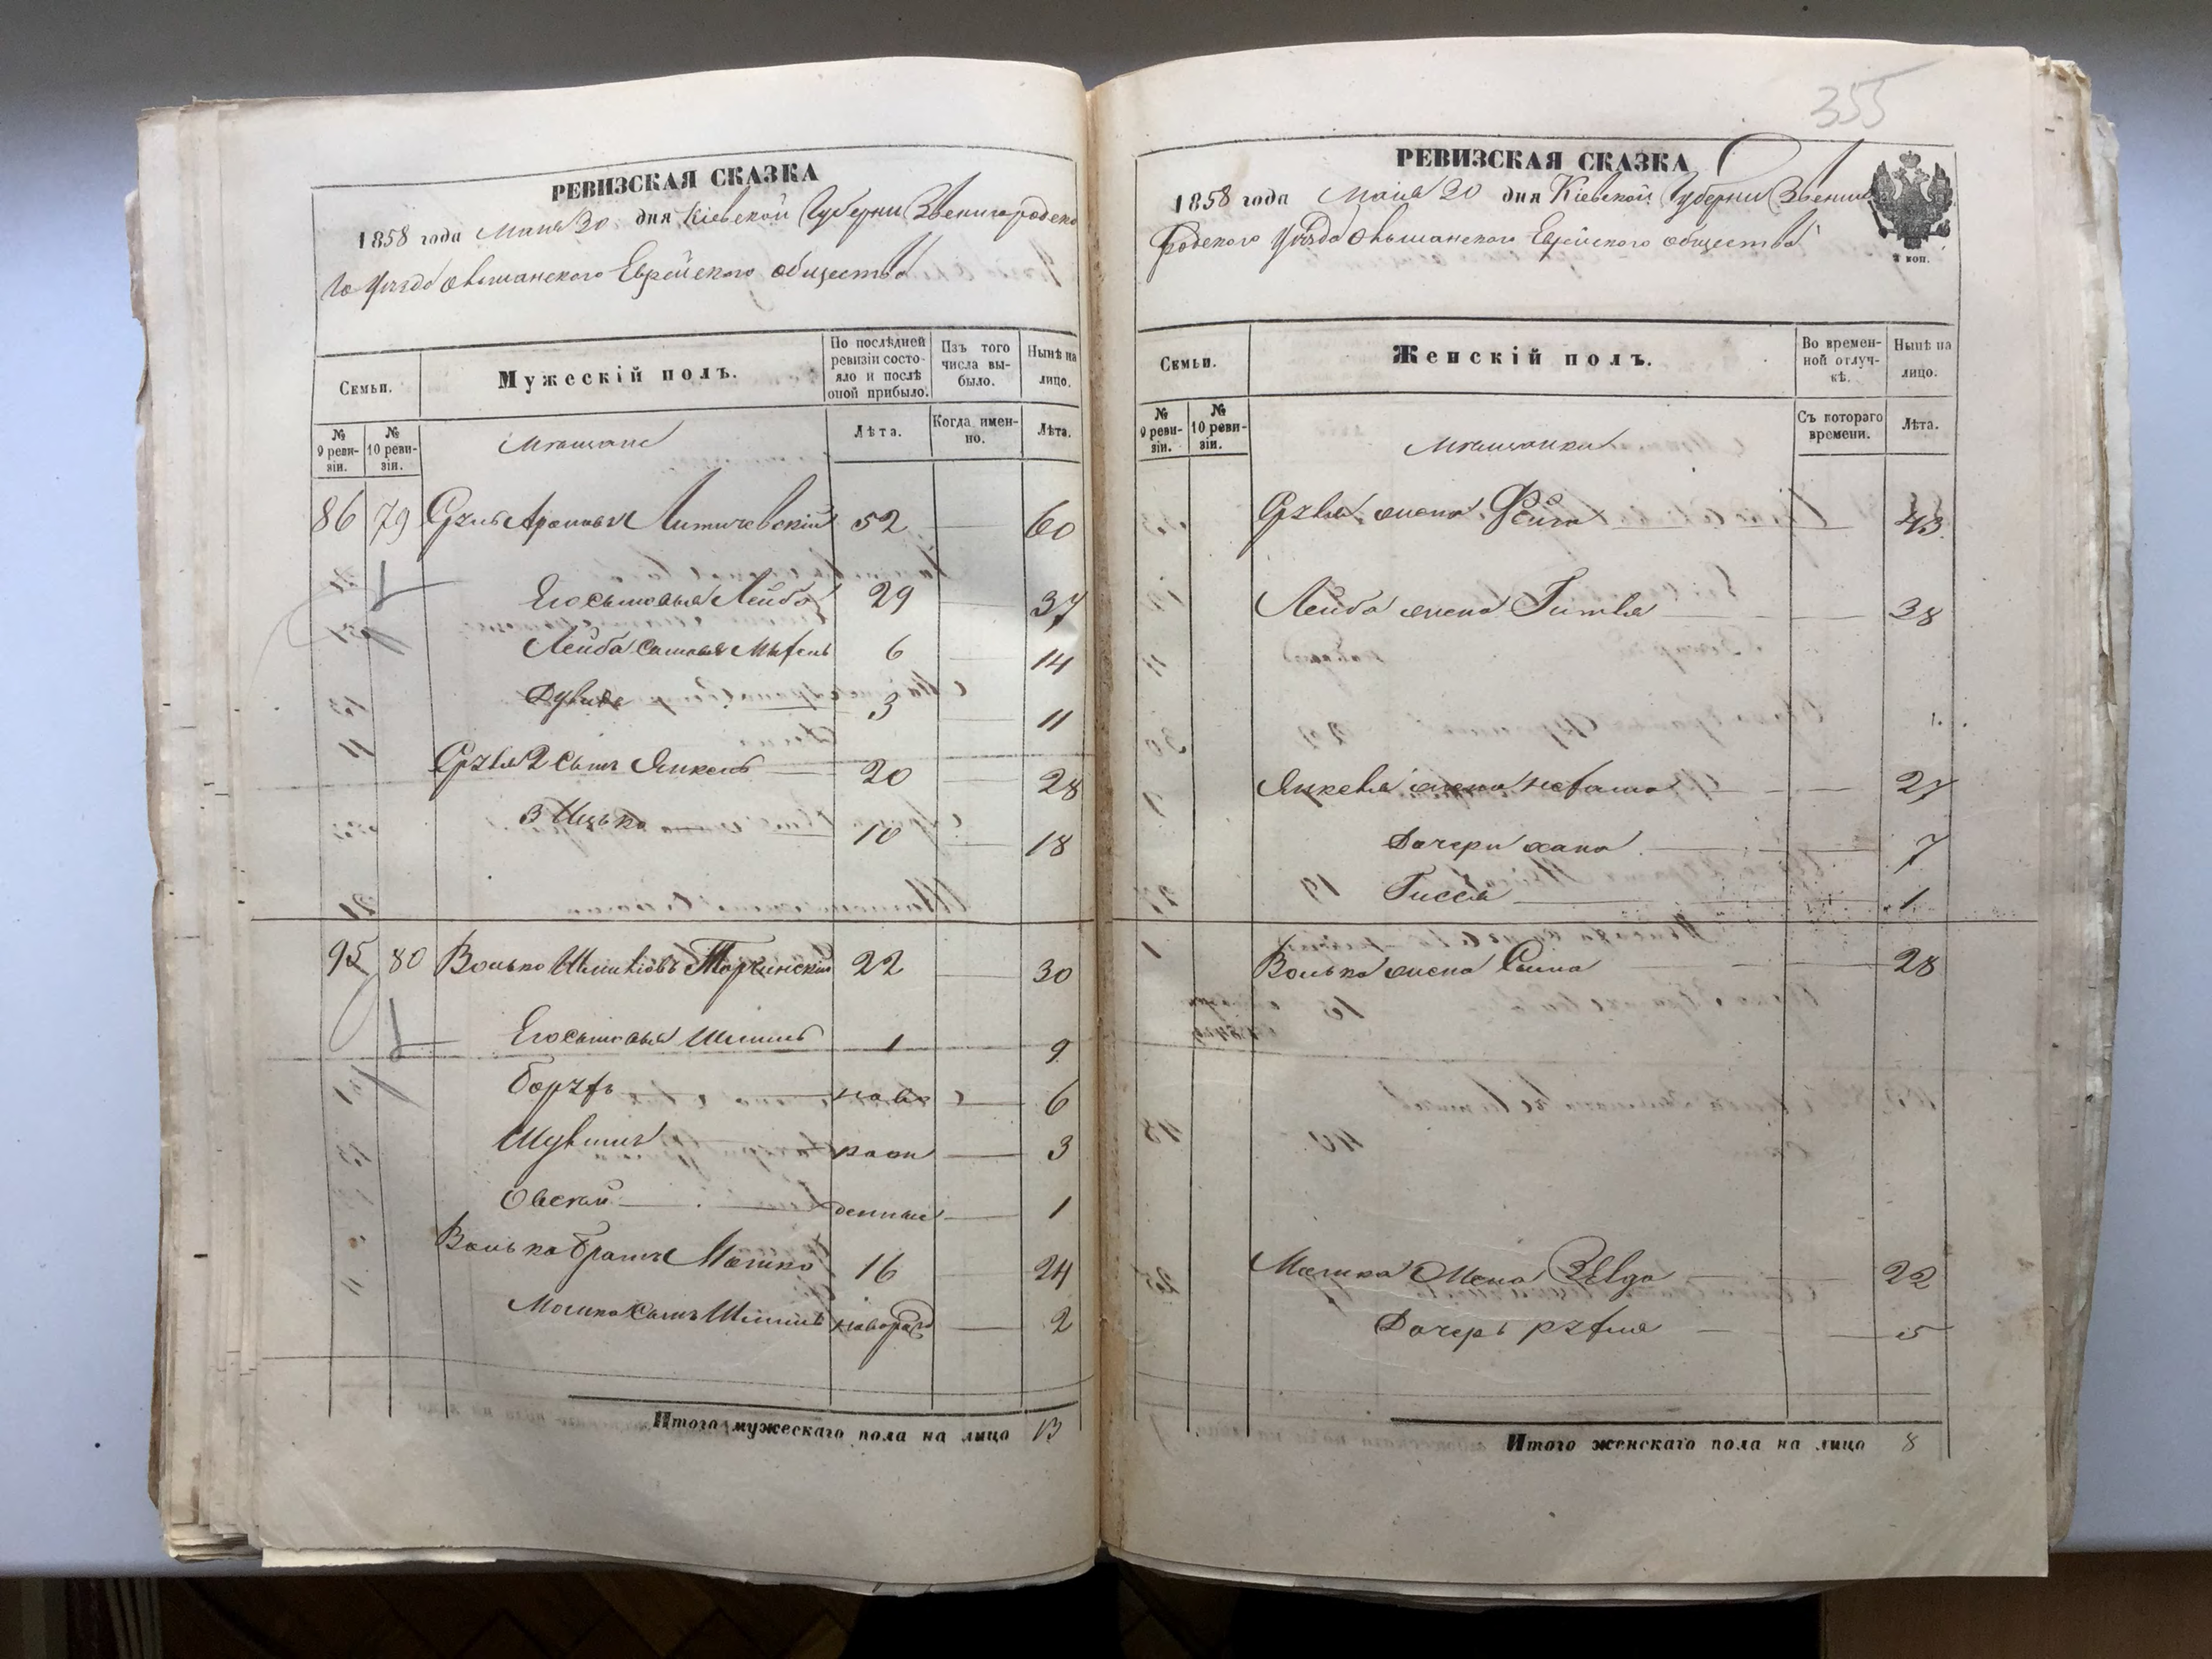 355
РЕВИЗСКАЯ СКАЗКА
1858 года Мая 20 дня Кіевской Губерніи Звенигородска
го Уѣзда Ольшанского Еврейского общества
Семьи.
Мужескій полъ.
По послѣдней ревизіи состояло и послѣ оной прибыло.
Изъ того числа выбыло.
Нынѣ на лицо.
№ 9 ревизіи.
№ 10 ревизіи.
Мѣщане
Лѣта.
Когда именно.
Лѣта.
86 79 Сруль Ароновъ Литичевскій 52 — 60
Его сыновья Лейба 29 — 37
Лейба сыновья 6 — 14
Дувидъ 3 — 11
Сруля 2 сынъ Янкель — 20 — 28
3 Ицько 10 — 18
95 80 Волько Шмилiовъ 22 — 30
Его сыновья Шмиль 1 — 9
— ново — 6
рож — 3
Овсей — денные — 1
Волька братъ Мошко 16 — 24
Мошка сынъ Шмиль новорожд — 2
Итого мужескаго пола на лицо 13
РЕВИЗСКАЯ СКАЗКА
1858 года Мая 20 дня Кіевской Губерніи Звени
городского Уѣзда Ольшанского Еврейского общества
2 коп.
Семьи.
Женскій полъ.
Во временной отлучкѣ.
Нынѣ на лицо.
№ 9 ревизіи.
№ 10 ревизіи.
Мѣщанки
Съ котораго времени.
Лѣта.
Сруля жена Фейга — 43
Лейба жена Гитля — 38
Янкеля жена — 27
Дочери Хана — 7
Гися — 1
Волька жена — 28
Мошка жена — 22
Дочерь — 5
Итого женскаго пола на лицо 8